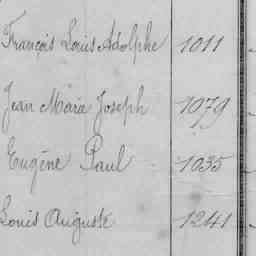 François Louis Adolphe 1011
Jean Marie Joseph 1079
Eugène Paul 1035
Louis Auguste 1241